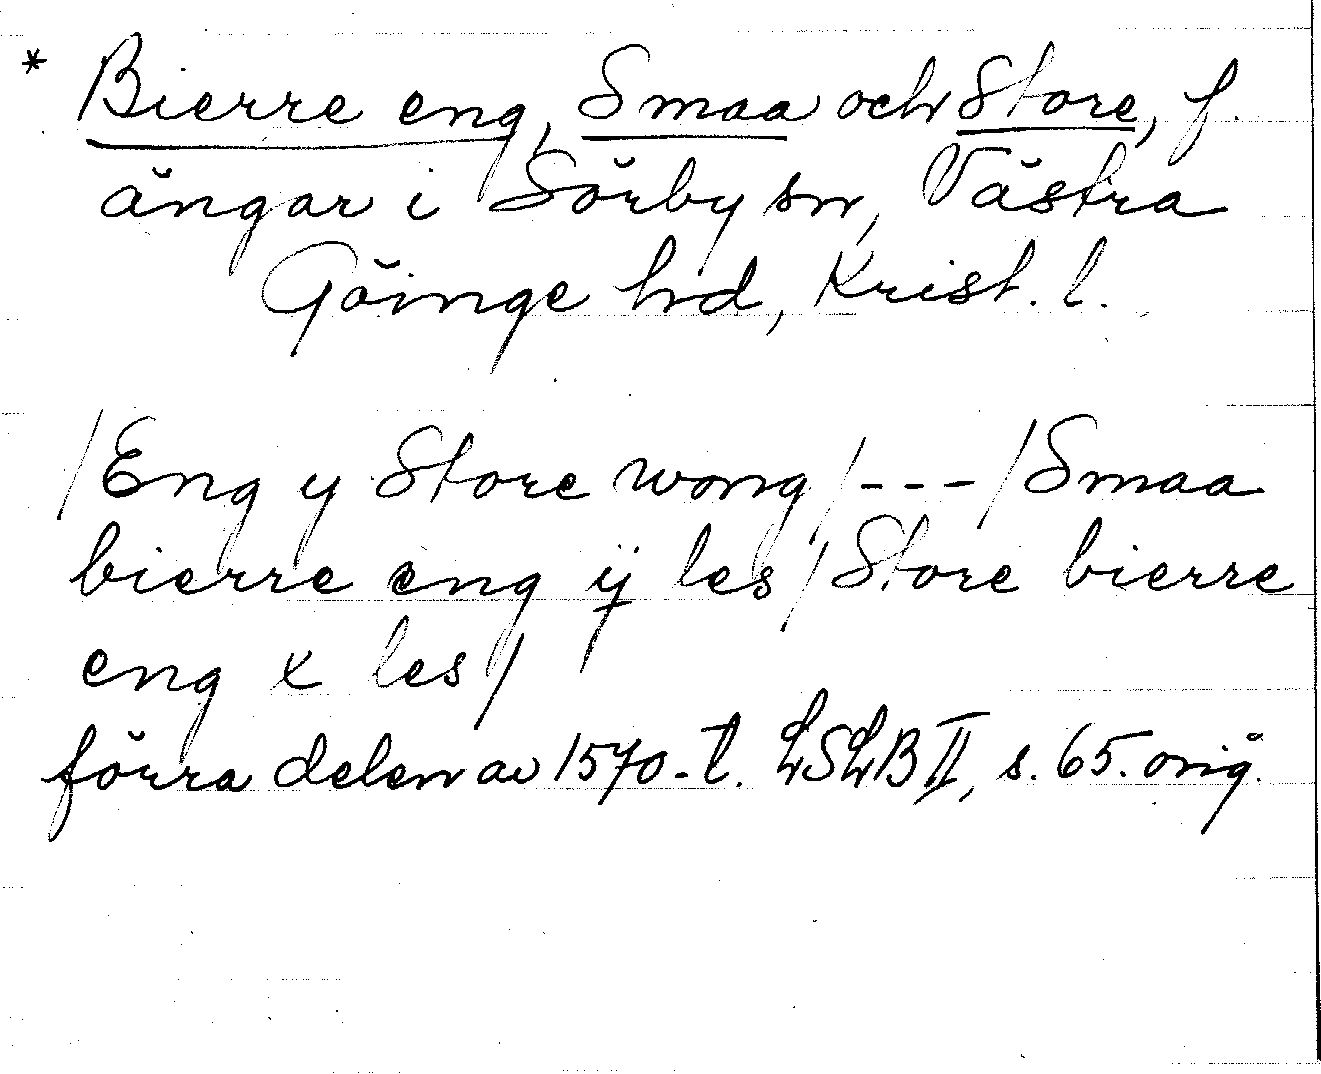 * Bierre eng, Smaa och Store, f.
ängar i Sörby sn, Västra
Göinge hd, Krist. l.
/Eng y Store wong/---/Smaa
bierre eng ij les/Store bierre
eng x les/
förra delen av 1570-t. LSLB II, s. 65. orig.